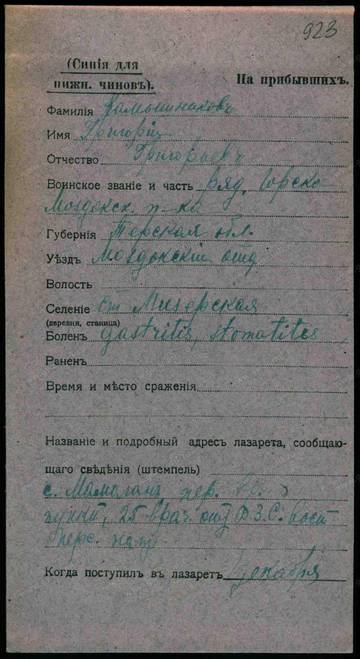 923
(Синія для
нижн. чиновъ).
На прибывшихъ.
Фамилія Камышниковъ
Имя Григорій
Отчество Григорьевъ
Воинское званіе и часть ряд. Горско-
Моздокск. п-ка
Губернія Терская обл.
Уѣздъ Моздокскій отд
Волость
Селеніе ст
(деревня, станица)
Боленъ gastritis, stomatites
Раненъ
Время и мѣсто сраженія
Названіе и подробный адресъ лазарета, сообщаю-
щаго свѣдѣнія (штемпель)
с.
пунктъ, 25 врач. отд.
Когда поступилъ въ лазаретъ декабря